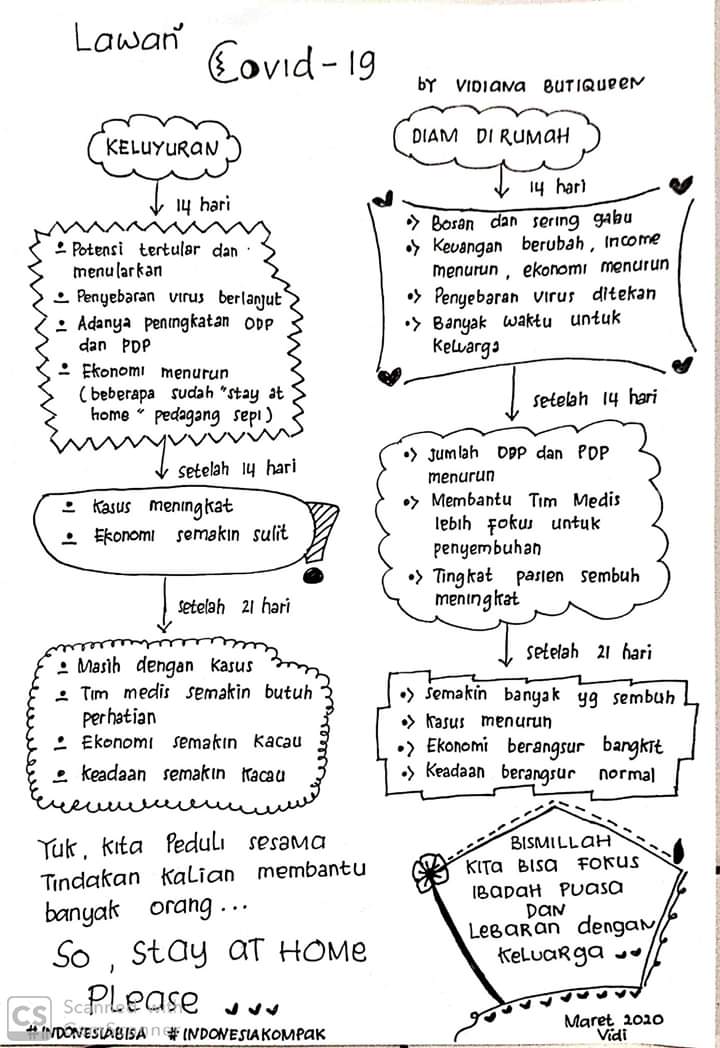 Lawan
Covid-19
by VIDIANA BUTIQUEEN
KELUYURAN
14 hari
Potensi tertular dan
menularkan
Penyebaran virus berlanjut
Adanya peningkatan ODP
dan PDP
Ekonomi menurun
(beberapa sudah "stay at
home" pedagang sepi)
setelah 14 hari
Kasus meningkat
Ekonomi semakin sulit
setelah 21 hari
Masih dengan Kasus
Tim medis semakin butuh
perhatian
Ekonomi semakin Kacau
keadaan semakin Kacau
DIAM DI RUMAH
14 hari
Bosan dan sering gabu
Keuangan berubah, Income
menurun, ekonomi menurun
Penyebaran virus ditekan
Banyak waktu untuk
Keluarga
setelah 14 hari
Jumlah ODP dan PDP
menurun
Membantu Tim Medis
lebih Fokus untuk
penyembuhan
Tingkat pasien sembuh
meningkat
setelah 21 hari
Semakin banyak yg sembuh
Kasus menurun
Ekonomi berangsur bangkit
Keadaan berangsur normal
Yuk, Kita Peduli sesama
Tindakan Kalian membantu
banyak orang...
So, Stay AT HOME
Please
#INDONESIABISA #INDONESIAKOMPAK
BISMILLAH
KITA BISA FOKUS
IBADAH PUASA
DAN
LEBARAN dengan
KELUARGA
Maret 2020
Vidi
CS Scanned with
CamScanner